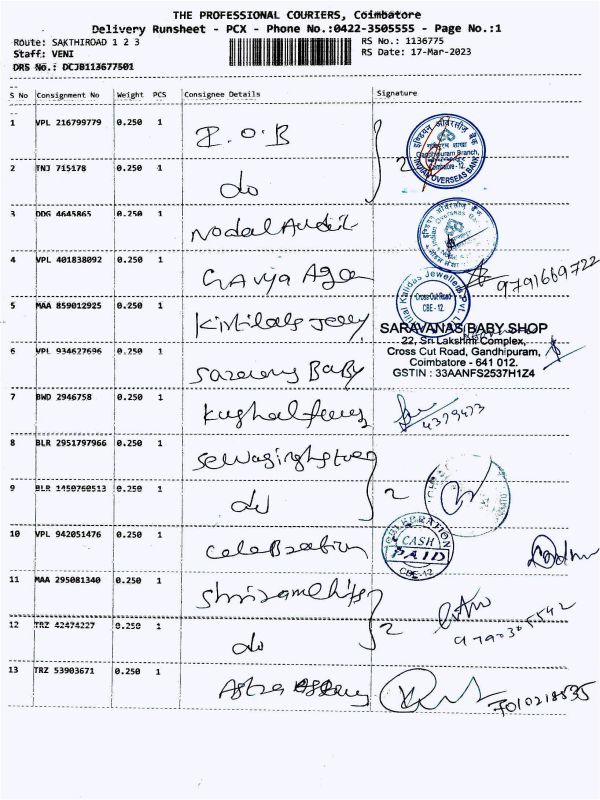 THE PROFESSIONAL COURIERS, Coimbatore
Delivery Runsheet - PCX - Phone No.:0422-3505555 - Page No.:1
Route: SAKTHIROAD 1 2 3
RS No.: 1136775
Staff: VENI
RS Date: 17-Mar-2023
DRS No.: DCJB113677501
S No Consignment No Weight PCS Consignee Details Signature
1 VPL 216799779 0.250 1 I.O.B 2
2 TNJ 715178 0.250 1 do
इण्डियन ओवरसीज़ बैंक
Gandhipuram Branch,
Coimbatore - 12.
INDIAN OVERSEAS BANK
3 DDG 4645865 0.250 1 Nodal Audit
4 VPL 401838092 0.250 1 9791669722
5 MAA 859012925 0.250 1 Kirtilals
Kirtilal Kalidas Jewellers Pvt. Ltd.
Cross Cut Road
CBE - 12.
SARAVANAS BABY SHOP
22, Sri Lakshmi Complex,
Cross Cut Road, Gandhipuram,
Coimbatore - 641 012.
GSTIN : 33AANFS2537H1Z4
6 VPL 934627696 0.250 1 Baby
7 BWD 2946758 0.250 1 Kushal
8 BLR 2951797966 0.250 1 2
9 BLR 1450760513 0.250 1 do
10 VPL 942051476 0.250 1 Celebration
CELEBRATION
CASH
PAID
CBE-12
11 MAA 295081340 0.250 1
12 TRZ 42474227 0.250 1 do 2
13 TRZ 53903671 0.250 1 7010218535